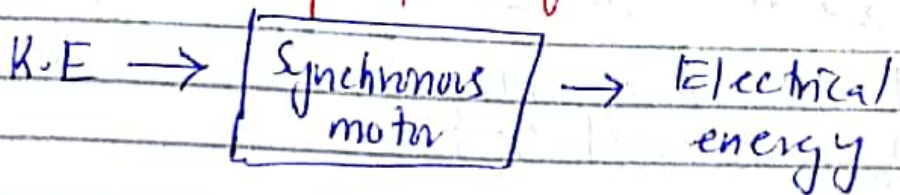 K.E → Synchronous motor → Electrical energy